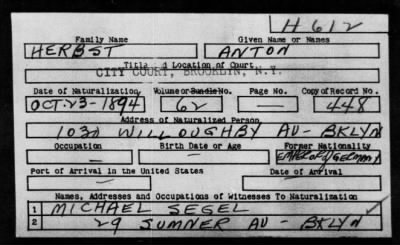 H 612
Family Name Given Name or Names
HERBST ANTON
Title and Location of Court
CITY COURT, BROOKLYN, N.Y.
Date of Naturalization Volume or Bundle No. Page No. Copy of Record No.
OCT. 23-1894 62 — 448
Address of Naturalized Person
WILLOUGHBY AV- BKLYN
Occupation Birth Date or Age Former Nationality
— — EMPEROR OF GERMANY
Port of Arrival in the United States Date of Arrival
— —
Names, Addresses and Occupations of Witnesses To Naturalization
1 MICHAEL SEGEL
2 29 SUMNER AV - BKLYN